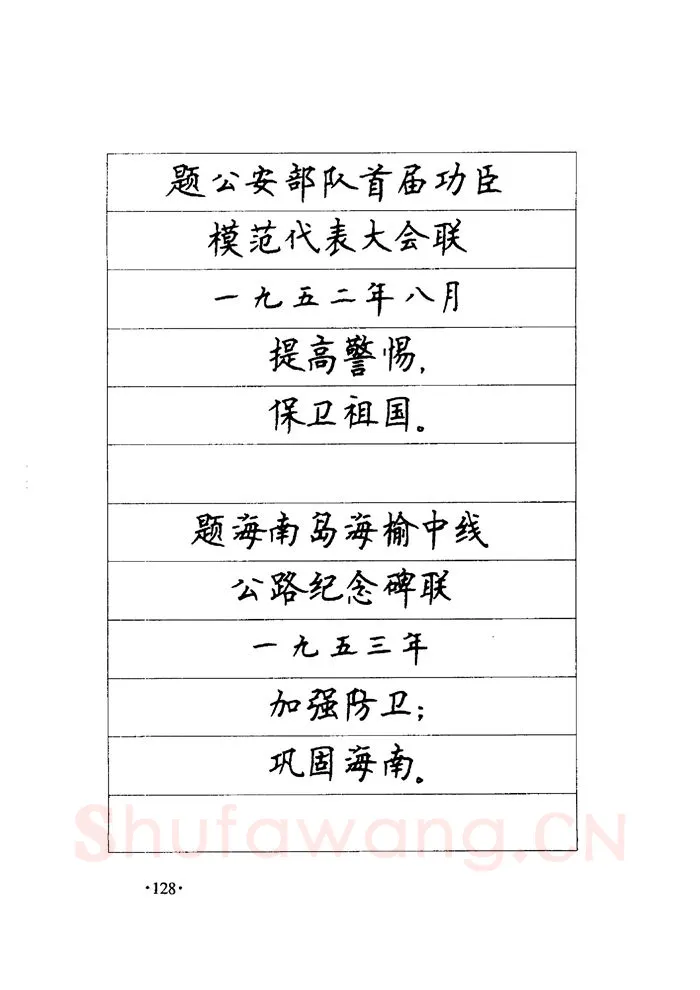 题公安部队首届功臣
模范代表大会联
一九五二年八月
提高警惕,
保卫祖国。
题海南岛海榆中线
公路纪念碑联
一九五三年
加强防卫;
巩固海南。
Shufawang.CN
·128·